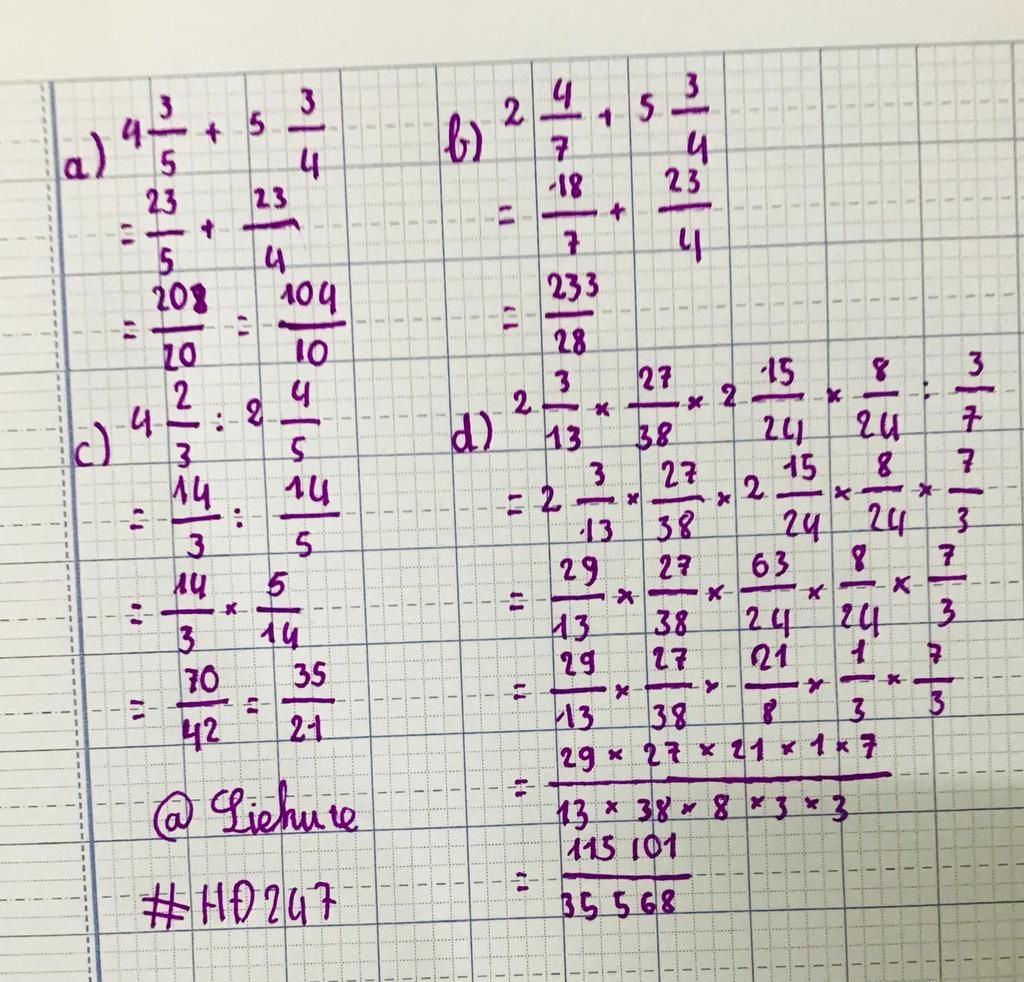 a) 4 3/5 + 5 3/4
= 23/5 + 23/4
= 208/20 = 104/10
b) 2 4/7 + 5 3/4
= 18/7 + 23/4
= 233/28
c) 4 2/3 : 2 4/5
= 14/3 : 14/5
= 14/3 × 5/14
= 70/42 = 35/21
@
#HĐ247
d) 2 3/13 × 27/38 × 2 15/24 × 8/24 : 3/7
= 2 3/13 × 27/38 × 2 15/24 × 8/24 × 7/3
= 29/13 × 27/38 × 63/24 × 8/24 × 7/3
= 29/13 × 27/38 × 21/8 × 1/3 × 7/3
= 29 × 27 × 21 × 1 × 7 / 13 × 38 × 8 × 3 × 3
= 115 101 / 35 568